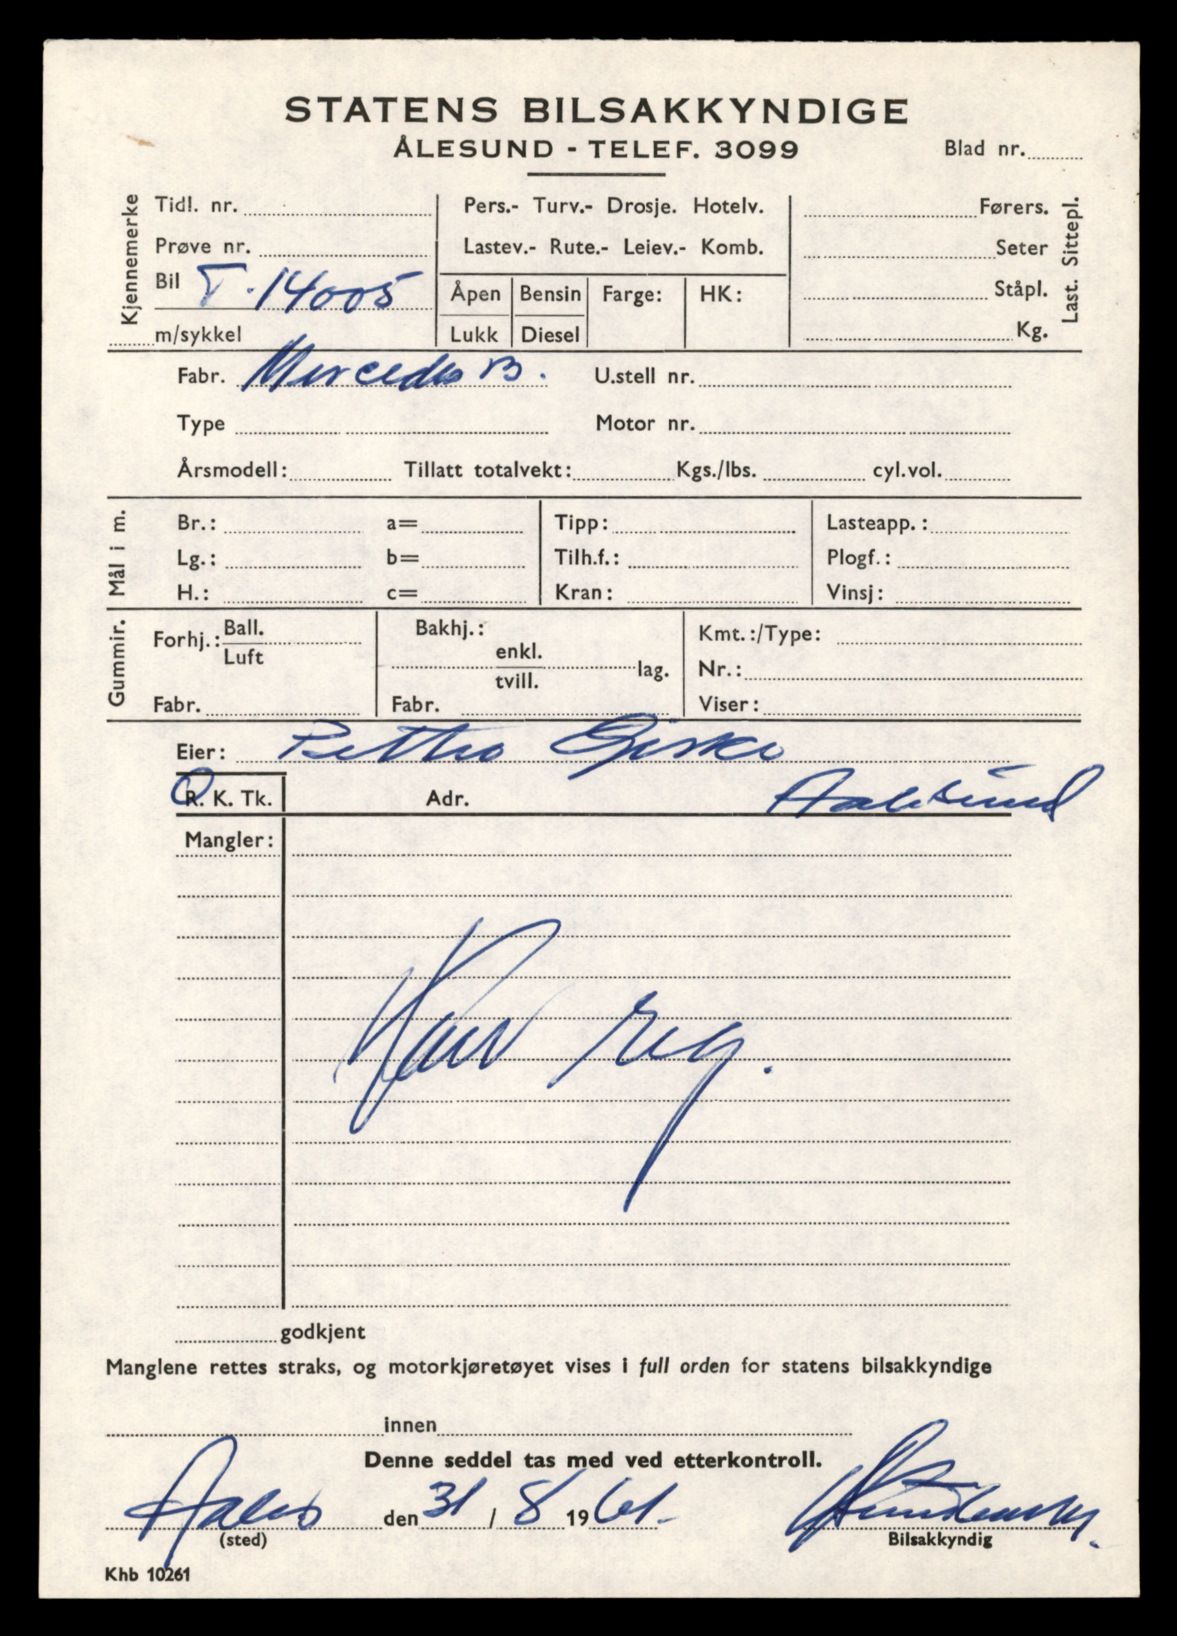 STATENS BILSAKKYNDIGE
ÅLESUND - TELEF. 3099
Blad nr.
Kjennemerke
Tidl. nr.
Prøve nr.
Bil T-14005
m/sykkel
Pers.- Turv.- Drosje. Hotelv.
Lastev.- Rute.- Leiev.- Komb.
Åpen Bensin Farge: HK:
Lukk Diesel
Førers.
Seter
Ståpl.
Kg.
Last. Sittepl.
Fabr. Mercedes B. U.stell nr.
Type Motor nr.
Årsmodell: Tillatt totalvekt: Kgs./lbs. cyl.vol.
Mål i m.
Br.: a= Tipp: Lasteapp.:
Lg.: b= Tilh.f.: Plogf.:
H.: c= Kran: Vinsj:
Gummir.
Forhj.: Ball.
Luft
Fabr.
Bakhj.:
enkl.
tvill. lag.
Fabr.
Kmt.:/Type:
Nr.:
Viser:
Eier: Giske
R. K. Tk. Adr. Aalesund
Mangler:
Kun reg.
godkjent
Manglene rettes straks, og motorkjøretøyet vises i full orden for statens bilsakkyndige
innen
Denne seddel tas med ved etterkontroll.
Aales den 31 / 8 1961.
(sted) Bilsakkyndig
Khb 10261